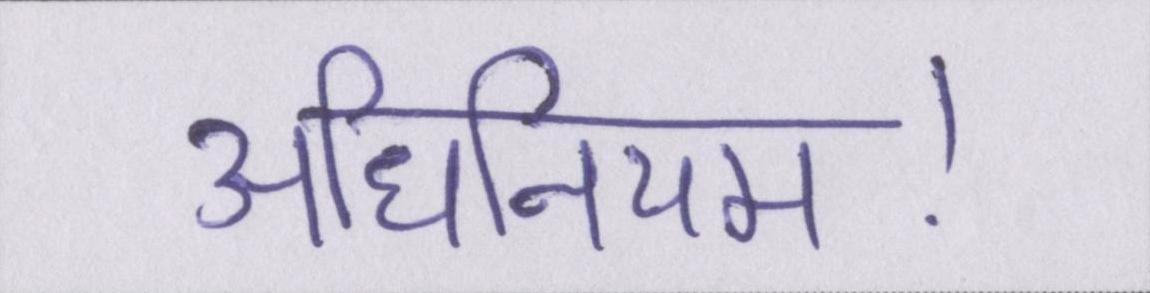 अधिनियम!